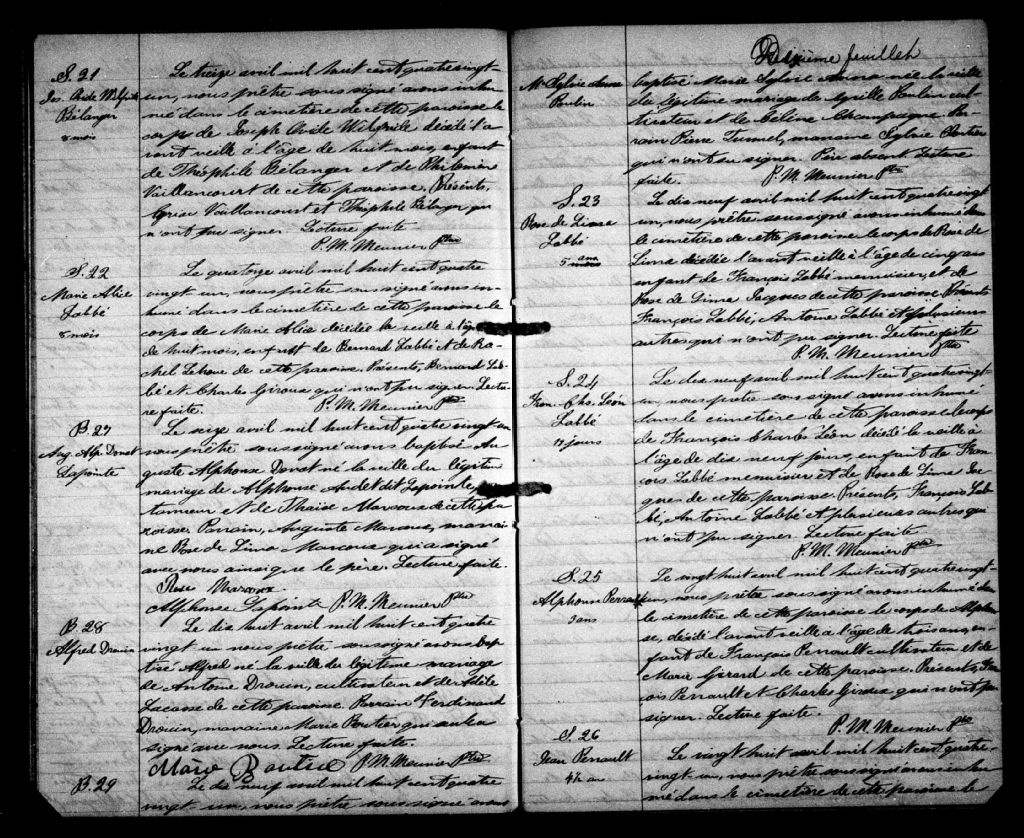 S. 21
Jos. Ovide Wilfride
Bélanger
8 mois
Le treize avril mil huit cent quatre vingt
un, nous prêtre soussigné avons inhu
mé dans le cimetière de cette paroisse le
corps de Joseph Ovide Wilfride décédé l'a
vant veille à l'âge de huit mois, enfant
de Théophile Bélanger et de Philomène
Vaillancourt de cette paroisse. Présents,
Vaillancourt et Théophile Bélanger qui
n'ont pu signer. Lecture faite
P. M. Meunier Ptre
S. 22
Marie Alice
Labbé
8 mois
Le quatorze avril mil huit cent quatre
vingt un, nous prêtre soussigné avons in
humé dans le cimetière de cette paroisse le
corps de Marie Alice décédée la veille à l'âge
de huit mois, enfant de Bernard Labbé et de Ra
chel Lehoux de cette paroisse. Présents, Bernard Lab
bé et Charles Giroux qui n'ont pu signer. Lectu
re faite.
P. M. Meunier Ptre
B. 27
Aug. Alp. Donat
Lapointe
Le seize avril mil huit cent quatre vingt un
nous prêtre soussigné avons baptisé Au
guste Alphonse Donat né la veille du légitime
mariage de Alphonse Audet dit Lapointe,
tanneur et de Thaïse Marcoux de cette pa
roisse. Parrain, Auguste Marcoux, marrai
ne Rose de Lima Marcoux qui a signé
avec nous ainsi que le père. Lecture faite.
Rose Marcoux
Alphonse Lapointe P. M. Meunier Ptre
B. 28
Alfred Drouin
Le dix huit avril mil huit cent quatre
vingt un nous prêtre soussigné avons bap
tisé Alfred né la veille du légitime mariage
de Antoine Drouin, cultivateur et de Adèle
Lacasse de cette paroisse. Parrain Ferdinand
Drouin, marraine Marie Boutier qui seule a
signé avec nous. Lecture faite.
P. M. Meunier Ptre
B. 29
Le dix neuf avril mil huit cent quatre
vingt un, nous prêtre soussigné avons
feuillet
M. Sylvie Anna
Poulin
baptisé Marie Sylvie Anna née la veille
du légitime mariage de Cyrille Poulin cul
tivateur et de Céline Champagne. Par
rain Pierre Turmel, marraine Sylvie Cloutier
qui n'ont su signer. Père absent. Lecture
faite.
P. M. Meunier Ptre
S. 23
Rose de Lima
Labbé
5 ans
Le dix neuf avril mil huit cent quatre vingt
un, nous prêtre soussigné avons inhumé dans
le cimetière de cette paroisse le corps de Rose de
Lima décédée l'avant veille à l'âge de cinq ans
enfant de François Labbé menuisier, et de
Rose de Lima Jacques de cette paroisse. Présents
François Labbé, Antoine Labbé et plusieurs
autres qui n'ont pu signer. Lecture faite
P. M. Meunier Ptre
S. 24
Fran. Chs. Léon
Labbé
19 jours
Le dix neuf avril mil huit cent quatre vingt-
un, nous prêtre soussigné avons inhumé
dans le cimetière de cette paroisse le corps
de François Charles Léon décédé la veille à
l'âge de dix neuf jours, enfant de Fran
çois Labbé menuisier et de Rose de Lima Jac
ques de cette paroisse. Présents, François Lab
bé, Antoine Labbé et plusieurs autres qui
n'ont pu signer. Lecture faite
P. M. Meunier Ptre
S. 25
Alphonse Perrault
3 ans
Le vingt huit avril mil huit cent quatre vingt-
un, nous prêtre soussigné avons inhumé dans
le cimetière de cette paroisse le corps de Alphon
se, décédé l'avant veille à l'âge de trois ans, en
fant de François Perrault cultivateur et de
Marie Girard de cette paroisse. Présents, Fran
çois Perrault et Charles Giroux, qui n'ont pu
signer. Lecture faite.
P. M. Meunier Ptre
S. 26
Jean Perrault
4½ an
Le vingt huit avril mil huit cent quatre-
vingt un, nous prêtre soussigné avons inhu
mé dans le cimetière de cette paroisse le